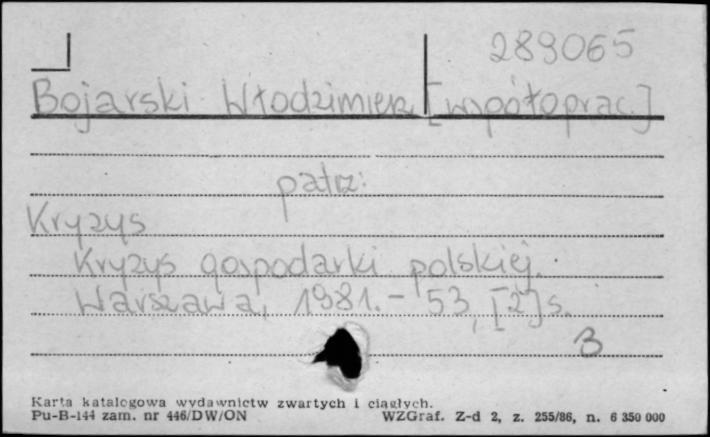 289065
Bojarski Włodzimierz [współoprac.]
patrz:
Kryzys
Kryzys gospodarki polskiej.
Warszawa, 1981. - 53, [2] s.
3
Karta katalogowa wydawnictw zwartych i ciągłych.
Pu-B-144 zam. nr 446/DW/ON WZGraf. Z-d 2, z. 255/86, n. 6 350 000